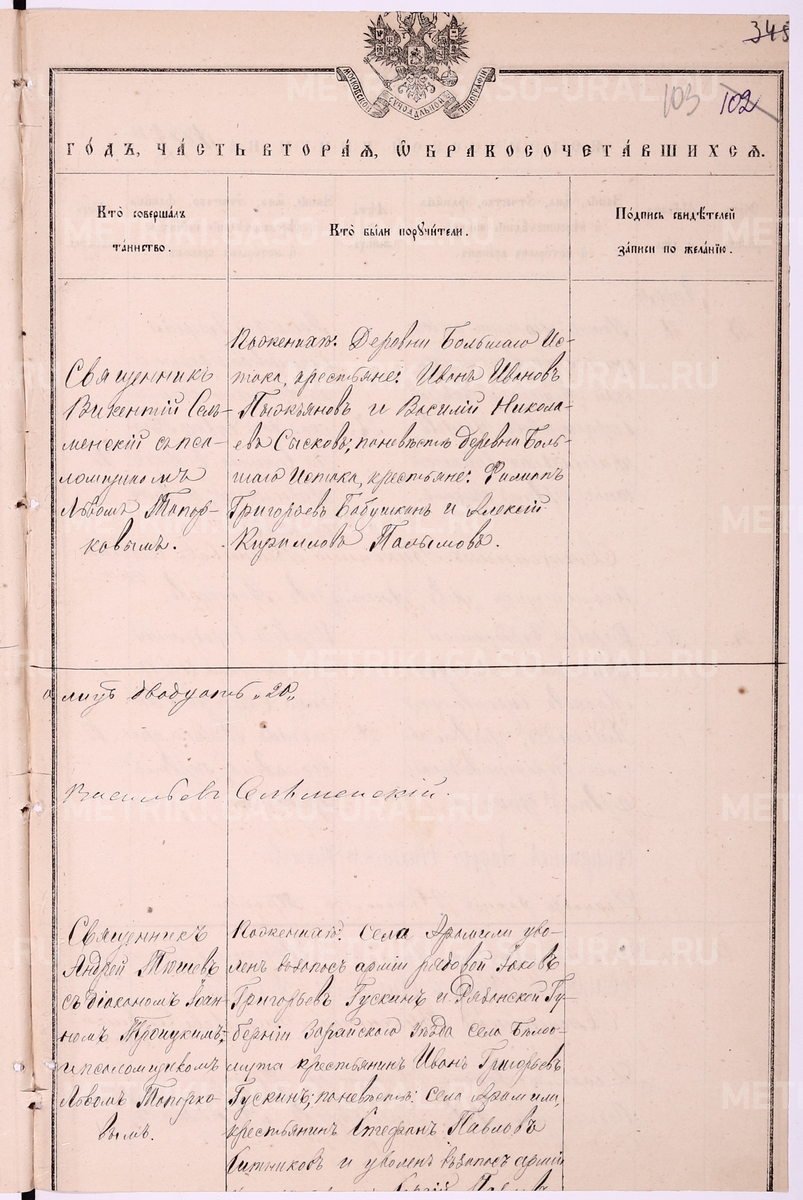 345
103 102
МОСКОВСКОЙ СѴНОДАЛЬНОЙ ТИПОГРАФІИ
ГО́ДЪ, ЧА́СТЬ ВТОРА́Я, Ѡ БРАКОСОЧЕТА́ВШИХСЯ.
Кто̀ соверша́лъ
та́инство.
Кто̀ бы́ли поручи́тели.
По́дпись свидѣ́телей
за́писи по жела́нію.
Священникъ
Викентій Сель-
менскій съ пса-
ломщикомъ
Львомъ Топор-
ковымъ.
По женихѣ: Деревни Большаго Ис-
тока, крестьяне: Иванъ Ивановъ
Пыжьяновъ и Василій Никола-
евъ Сысковъ; по невѣстѣ деревни Боль-
шаго Истока, крестьяне: Филиппъ
Григорьевъ Бабушкинъ и Алексій
Кирилловъ Палымовъ.
лицъ двадцать „20„
Васильевъ Сельменскій.
Священникъ
Андрей
съ діакономъ Іоан-
номъ Троицкимъ
и псаломщикомъ
Львомъ Топорко-
вымъ.
По женихѣ: села Арамили уво-
ленъ въ запасъ арміи рядовой Іаковъ
Григорьевъ Гускинъ и Рязанской Гу-
берніи Зарайскаго уѣзда села Бѣло-
мута крестьянинъ Иванъ Григорьевъ
Гускинъ; по невѣстѣ: села Арамили,
крестьянинъ Стефанъ Павловъ
Ситниковъ и уволенъ въ запасъ арміи
METRIKI.GASO-URAL.RU